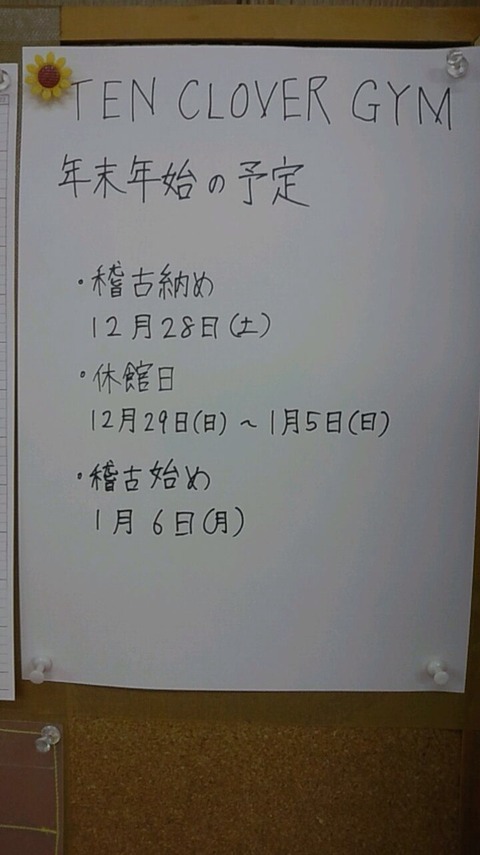 TEN CLOVER GYM
年末年始の予定
・稽古納め
12月28日(土)
・休館日
12月29日(日)~1月5日(日)
・稽古始め
1月6日(月)